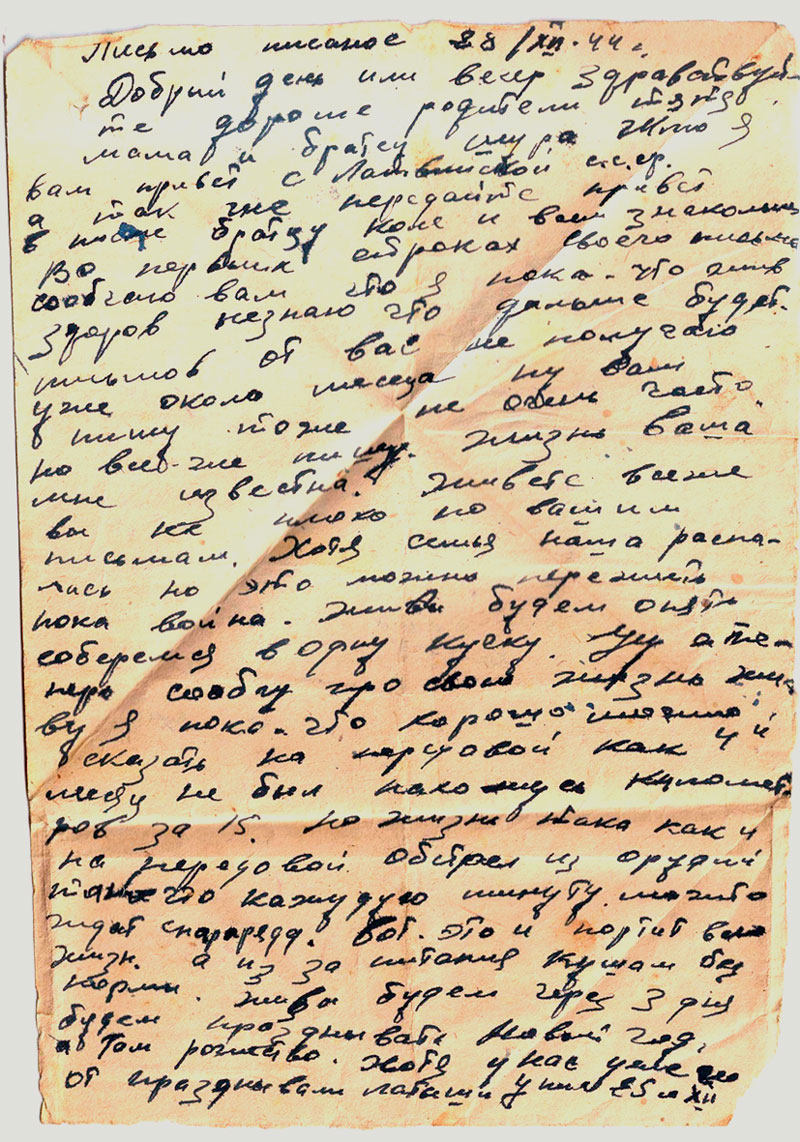 Письмо писаное 28/XII-44 г.
Добрий день или вечер здравствуй-
те дороше родители тятя
мама и братец шура Жто я
вам привет с Латвийской с.с.р.
а так же передайте привет
в письме братцу коле и вашим знакомым
Во первых строках своего письма
сообчаю вам что я пока-что жив
здоров незнаю что дальше будет.
письмов от вас не получаю
уже около месеца ну вам
пишу тоже не очень часто
но все-же пишу. жизнь ваша
мне известна. живете все же
вы не плохо по вашим
письмам. Хотя семья наша распа-
лась но это можно пережить
пока война. живы будем опять
соберемся в одну куску. Ну а те-
перь сообчу про свою жизнь жи-
ву я пока-что хорошо
сказать на передовой как 4 й
месяц не был нахожусь километ-
ров за 15. но жизнь така как и
на передовой обстрел из орудий
так что кажудую минуту можно
ждат снаряда. Вот это и портит всю
жизн. а из за питания кушам без
нормы. живы будем через 3 дня
будем празднывать Новый год,
а там рожство. Хотя у нас уже
от празднывали латыши у них 25 го XII